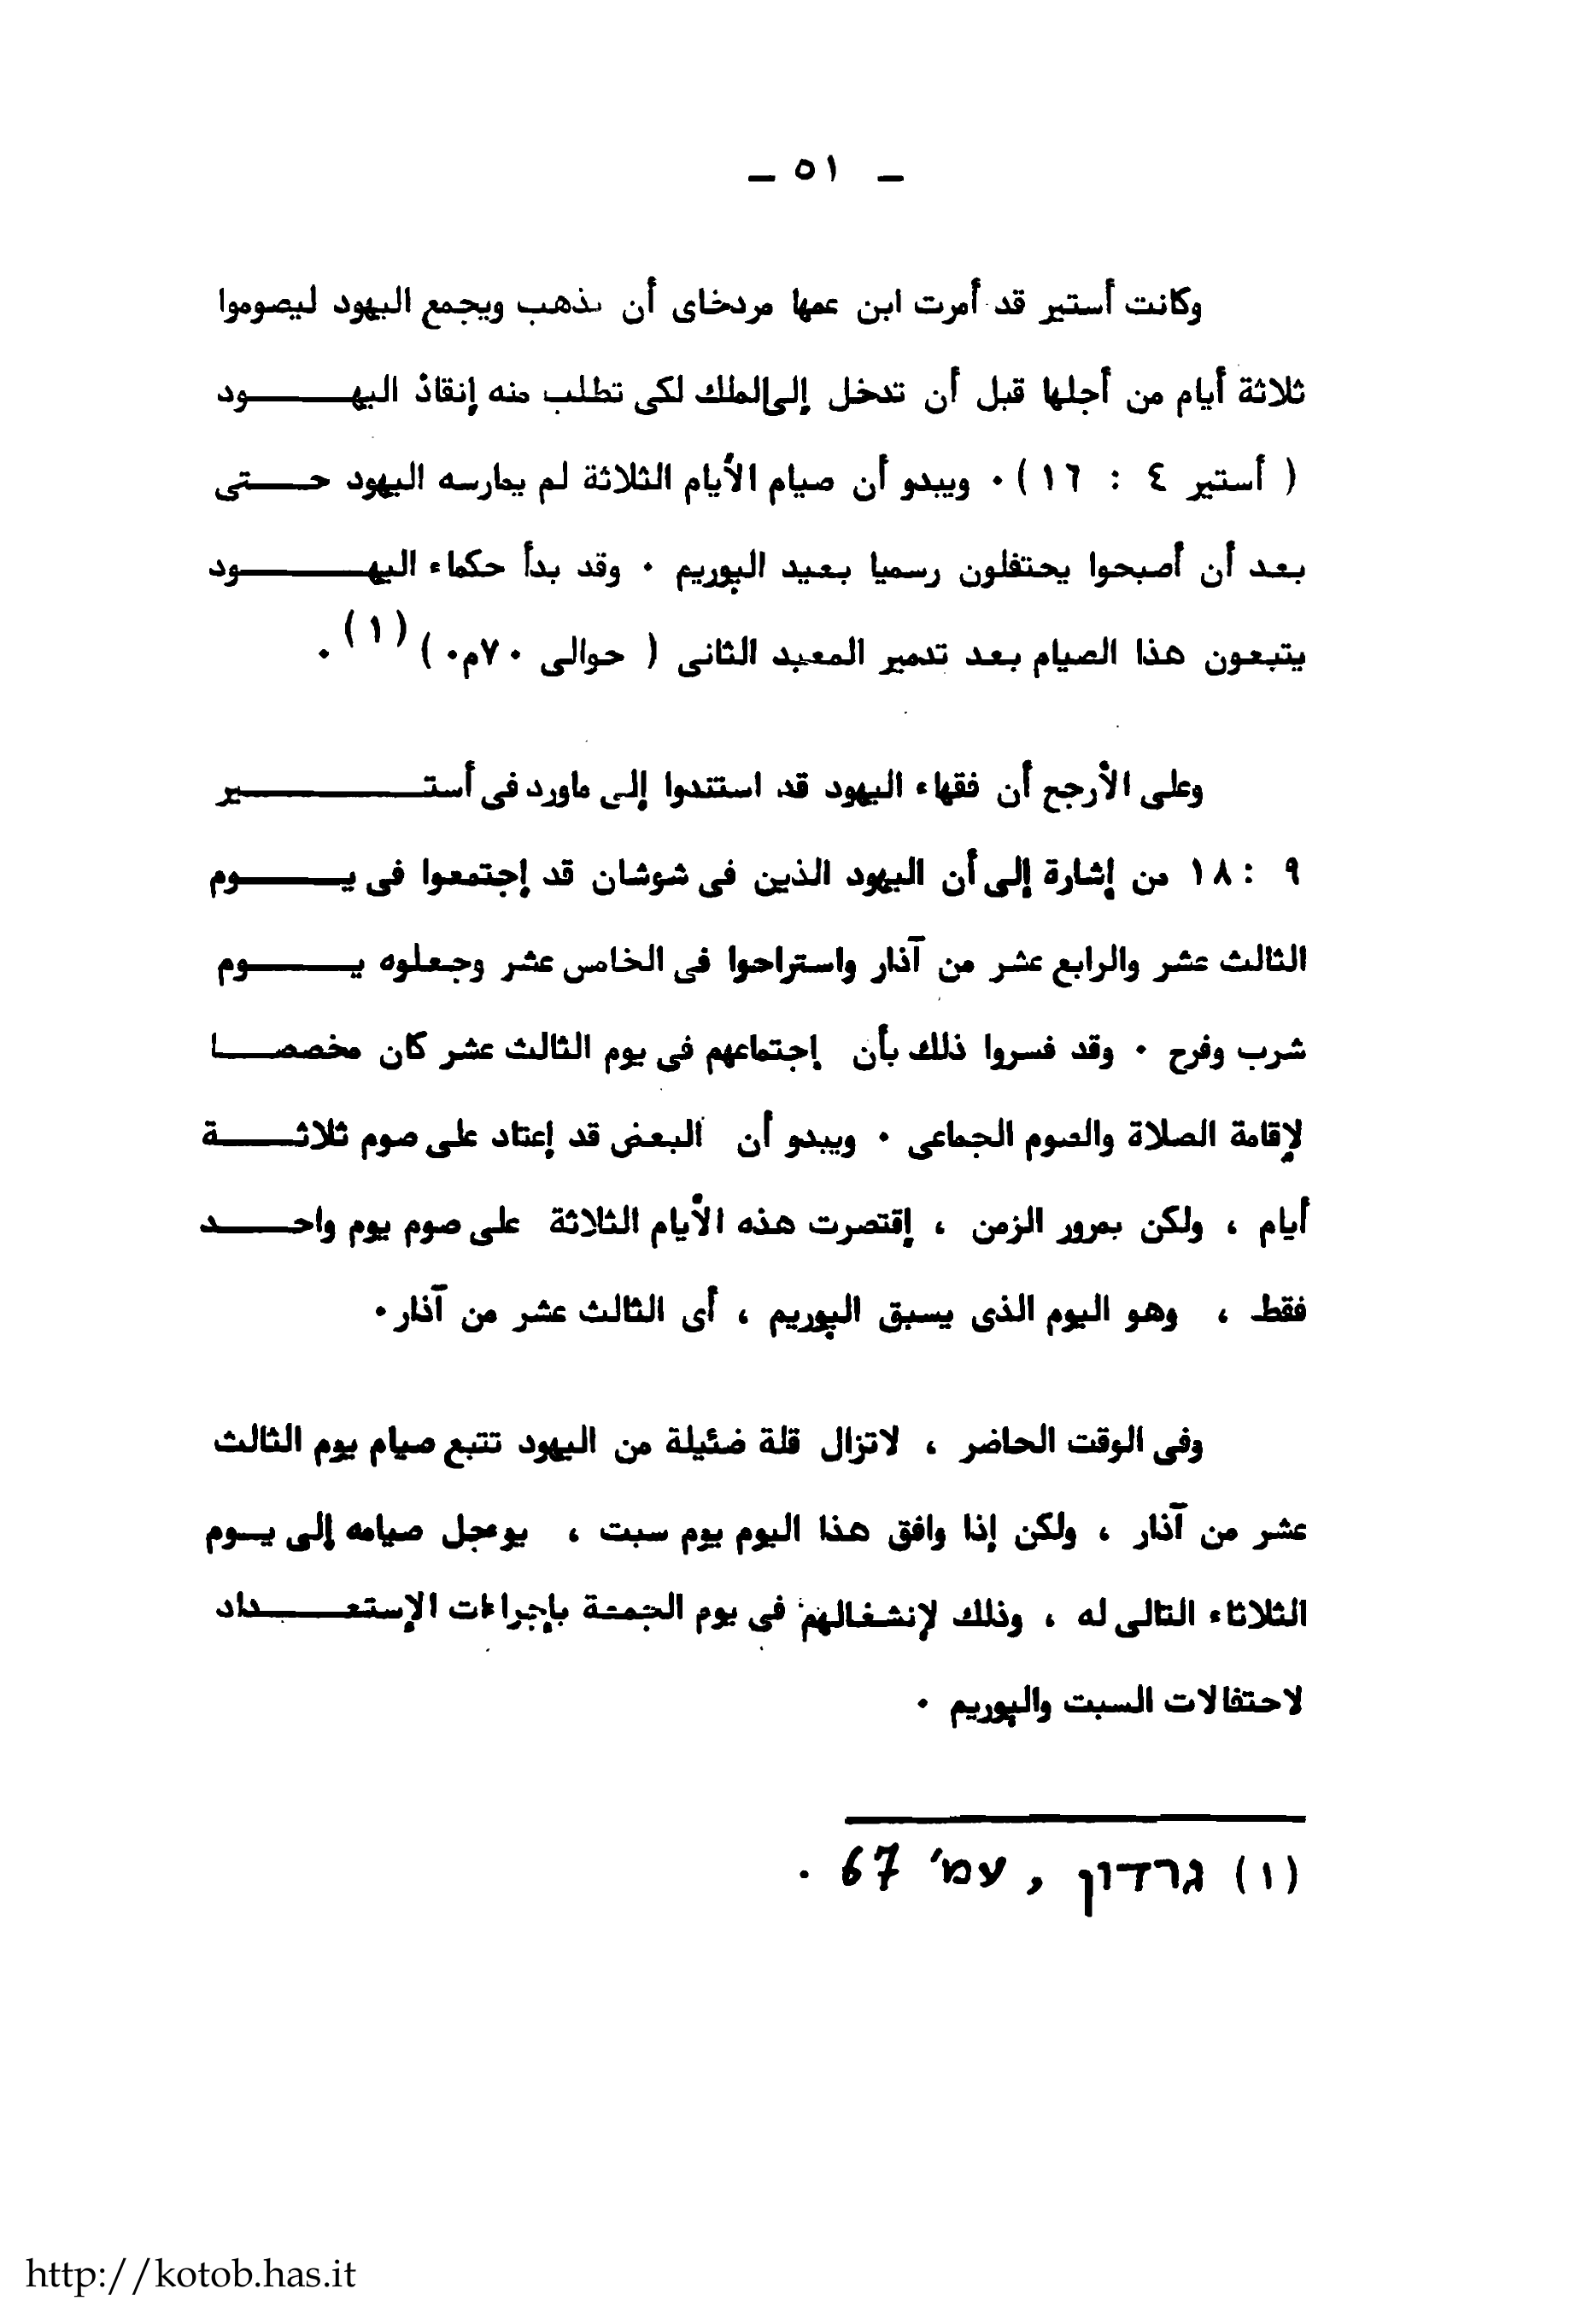 ــ ٥١ ــ
وكانت أستير قد أمرت ابن عمها مردخاى أن يذهب ويجمع اليهود ليصوموا
ثلاثة أيام من أجلها قبل أن تدخل إلى الملك لكى تطلب منه إنقاذ اليهـــــود
( أستير ٤ : ١٦ ) ٠ ويبدو أن صيام الأيام الثلاثة لم يمارسه اليهود حـــتى
بعد أن أصبحوا يحتفلون رسميا بعيد الپوريم ٠ وقد بدأ حكماء اليهـــــود
يتبعون هذا الصيام بعد تدمير المعبد الثانى ( حوالى ٧٠م٠ ) (١) ٠
وعلى الأرجح أن فقهاء اليهود قد استندوا إلى ماورد فى أستـــــــير
٩ : ١٨ من إشارة إلى أن اليهود الذين فى شوشان قد إجتمعوا فى يـــــوم
الثالث عشر والرابع عشر من آذار واستراحوا فى الخامس عشر وجعلوه يـــــوم
شرب وفرح ٠ وقد فسروا ذلك بأن إجتماعهم فى يوم الثالث عشر كان مخصصـــا
لإقامة الصلاة والصوم الجماعى ٠ ويبدو أن البعض قد إعتاد على صوم ثلاثــــة
أيام ، ولكن بمرور الزمن ، إقتصرت هذه الأيام الثلاثة على صوم يوم واحــــد
فقط ، وهو اليوم الذى يسبق الپوريم ، أى الثالث عشر من آذار ٠
وفى الوقت الحاضر ، لاتزال قلة ضئيلة من اليهود تتبع صيام يوم الثالث
عشر من آذار ، ولكن إذا وافق هذا اليوم يوم سبت ، يوءجل صيامه إلى يـــوم
الثلاثاء التالى له ، وذلك لإنشغالهم فى يوم الجمعة بإجراءات الإستعـــــداد
لاحتفالات السبت والپوريم ٠
(١) גרדון , עמ' 67 .
http://kotob.has.it